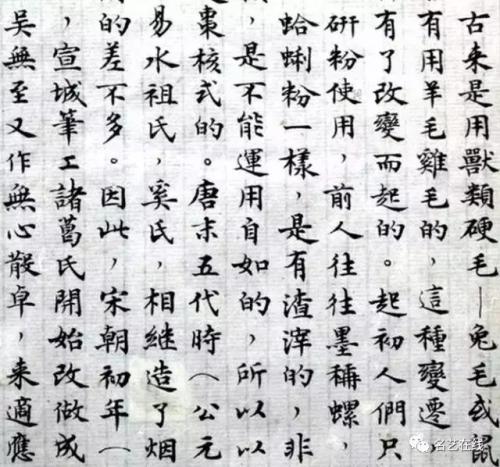 古来是用獸類硬毛—兔毛或鼠
有用羊毛雞毛的，這種變遷
有了改變而起的。起初人們只
研粉使用，前人往往墨稱螺，
蛤蜊粉一樣，是有渣滓的，非
，是不能運用自如的，所以以
棗核式的。唐末五代時（公元
易水祖氏，奚氏，相継造了烟
的差不多。因此，宋朝初年（
，宣城筆工諸葛氏開始改做成
吳無至又作無心散卓，来適應
名艺在线